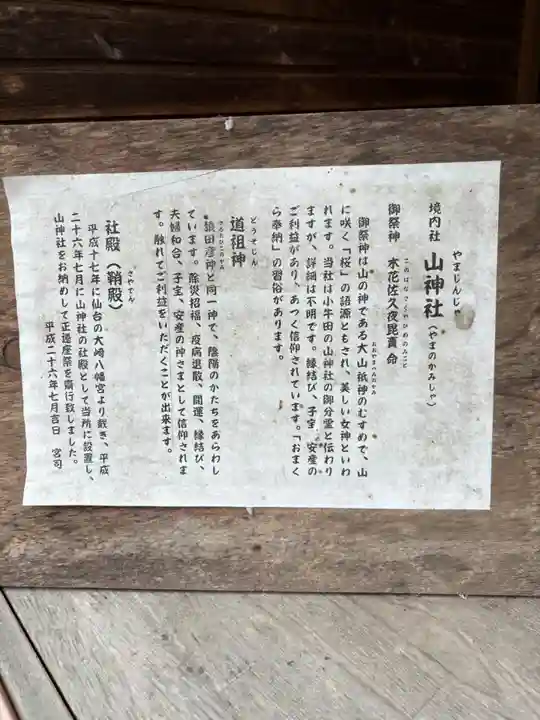 境内社 山神社(やまのかみしゃ)
やまじんじゃ
御祭神 木花佐久夜毘売命
このはなさくやひめのみこと
御祭神は山の神である大山祇神のむすめで、山
おおやまつみのかみ
に咲く「桜」の語源ともされ、美しい女神といわ
れます。当社は小牛田の山神社の御分霊と伝わり
ますが、詳細は不明です。縁結び、子宝、安産の
ご利益があり、あつく信仰されています。「おまく
ら奉納」の習俗があります。
道祖神
どうそじん
猿田彦神と同一神で、陰陽のかたちをあらわし
さるたひこのかみ
ています。除災招福、疫病退散、開運、縁結び、
夫婦和合、子宝、安産の神さまとして信仰されま
す。触れてご利益をいただくことが出来ます。
社殿(鞘殿)
さやでん
平成十七年に仙台の大崎八幡宮より戴き、平成
二十六年七月に山神社の社殿として当所に設置し、
山神社をお納めして正遷座祭を齋行致しました。
平成二十六年七月吉日 宮司